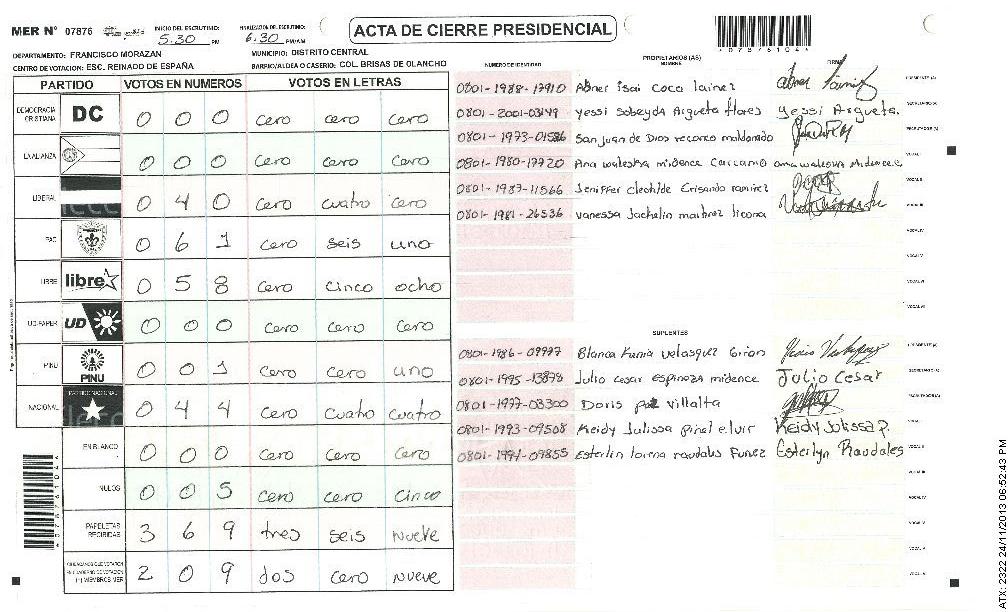 MER N° 07876
INICIO DEL ESCRUTINIO: 5:30 PM
FINALIZACION DEL ESCRUTINIO: 6:30 PM/AM
ACTA DE CIERRE PRESIDENCIAL
DEPARTAMENTO: FRANCISCO MORAZAN
MUNICIPIO: DISTRITO CENTRAL
CENTRO DE VOTACION: ESC. REINADO DE ESPAÑA
BARRIO/ALDEA O CASERIO: COL. BRISAS DE OLANCHO
PARTIDO VOTOS EN NUMEROS VOTOS EN LETRAS
DEMOCRACIA CRISTIANA DC 0 0 0 cero cero cero
LA ALIANZA 0 0 0 cero cero cero
LIBERAL 0 4 0 cero cuatro cero
PAC 0 6 1 cero seis uno
LIBRE libre 0 5 8 cero cinco ocho
UD-FAPER UD 0 0 0 cero cero cero
PINU PINU 0 0 1 cero cero uno
NACIONAL 0 4 4 cero cuatro cuatro
EN BLANCO 0 0 0 cero cero cero
NULOS 0 0 5 cero cero cinco
PAPELETAS RECIBIDAS 3 6 9 tres seis nueve
CIUDADANOS QUE VOTARON EN CUADERNO DE VOTACION (+) MIEMBROS MER 2 0 9 dos cero nueve
NUMERO DE IDENTIDAD PROPIETARIOS (AS) NOMBRE FIRMA
0801-1988-17910 Abner isai coca lainez PRESIDENTE (A)
0801-2001-03149 yessi sobeyda Argueta flores yessi Argueta. SECRETARIO (A)
0801-1973-01586 San juan de Dios reconco maldonado ESCRUTADOR (A)
0801-1980-17720 Ana waleska midence Carcamo VOCAL I
0801-1987-11566 Jeniffer cleotilde Crisando ramirez VOCAL II
0801-1981-26536 vanessa Jackelin martinez licona VOCAL III
VOCAL IV
VOCAL V
VOCAL VI
VOCAL VII
SUPLENTES
0801-1986-09997 Blanca Kenia velasquez Giron PRESIDENTE (A)
0801-1995-13878 Julio cesar espinoza midence Julio Cesar SECRETARIO (A)
0801-1977-03300 Doris paz villalta ESCRUTADOR (A)
0801-1993-09508 Keidy Julissa pinel elvir Keidy Julissa P. VOCAL I
0801-1991-09855 Esterlin lorena raudales Funez Esterlyn Raudales VOCAL II
VOCAL III
VOCAL IV
VOCAL V
ATX: 2322 24/11/2013 06:52:43 PM